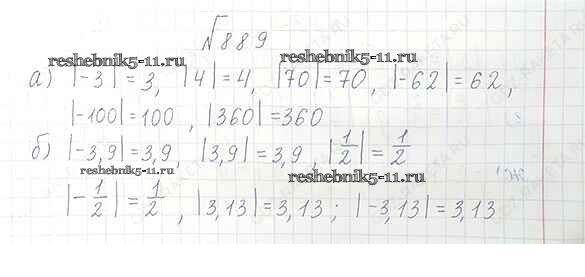 №889
reshebnik5-11.ru reshebnik5-11.ru
а) |-3|=3, |4|=4, |70|=70, |-62|=62,
|-100|=100, |360|=360
б) |-3,9|=3,9, |3,9|=3,9, |1/2|=1/2
reshebnik5-11.ru reshebnik5-11.ru
|-1/2|=1/2, |3,13|=3,13; |-3,13|=3,13